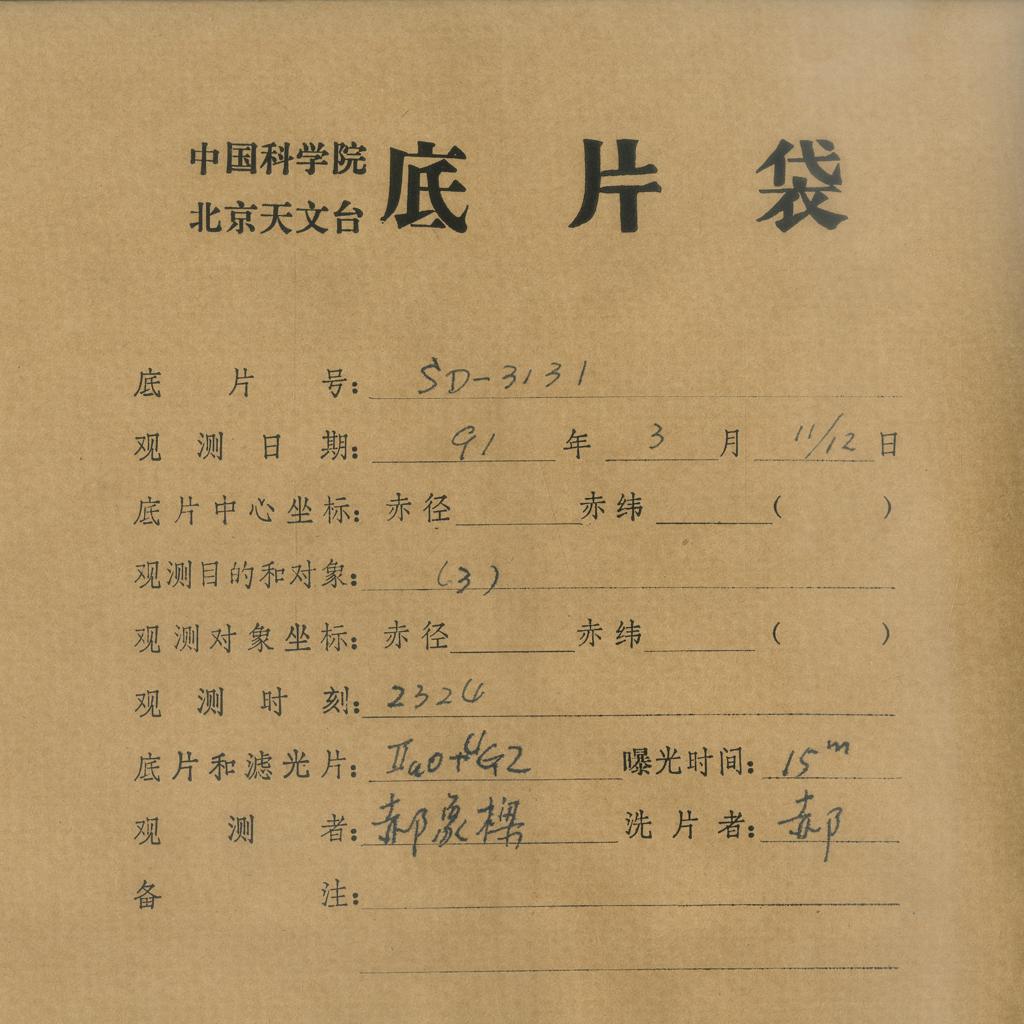 中国科学院
北京天文台
底片袋
底片号: SD-3131
观测日期: 91 年 3 月 11/12 日
底片中心坐标: 赤径 赤纬 ( )
观测目的和对象: (3)
观测对象坐标: 赤径 赤纬 ( )
观测时刻: 2324
底片和滤光片: IIaO+UG2 曝光时间: 15m
观测者: 郝象樑 洗片者: 郝
备注: